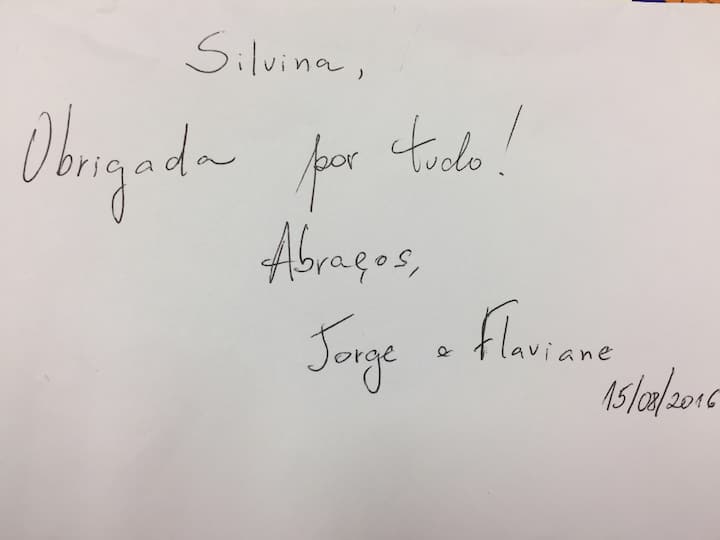 Silvina,
Obrigada por tudo!
Abraços,
Jorge e Flaviane
15/08/2016